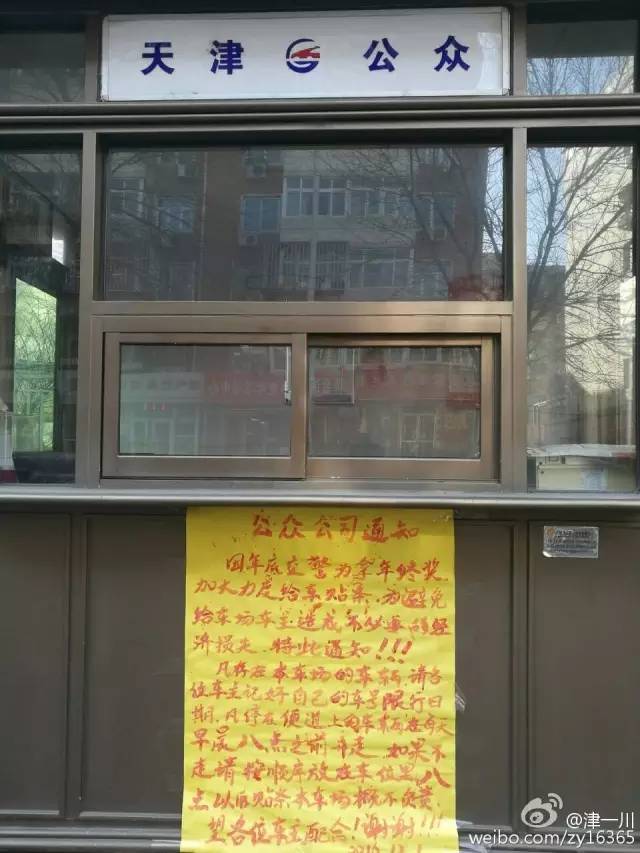 天津 公众
公众公司通知
因年底交警为拿年终奖
加大力度给车贴条,为避免
给车场车主造成不必要的经
济损失.特此通知!!!
凡存在本车场的车辆,请各
位车主记好自己的车号限行日
期.凡停在便道上的车辆在每天
早晨八点之前开走.如果不
走请按顺序放在车位里,八
点以后贴条本车场概不负责,
望各位车主配合!谢谢!!!
@津一川
weibo.com/zy16365